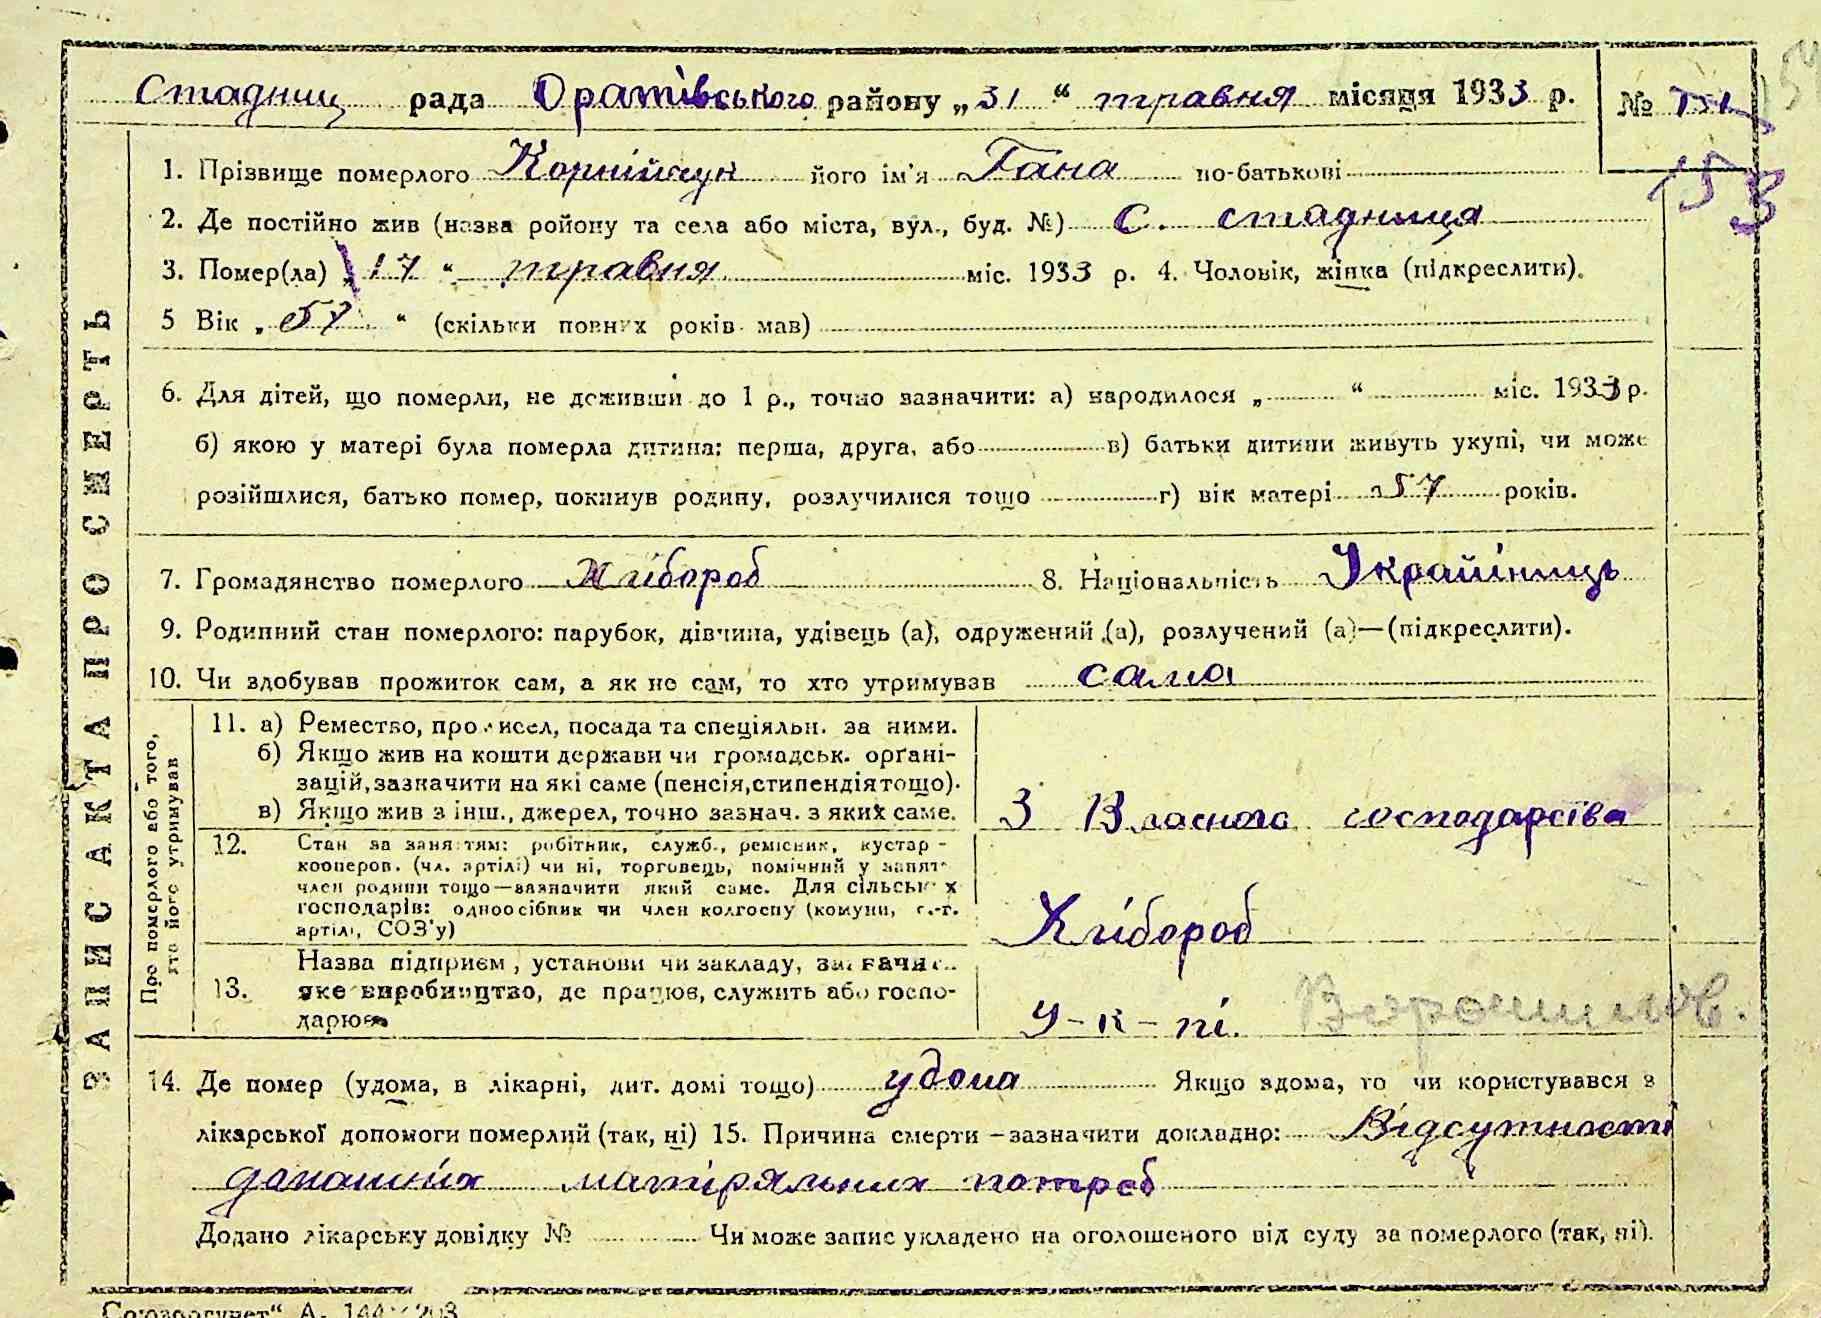 Стадниц рада Оратівського району „31“ травня місяця 1933 р.
№
153
1. Прізвище померлого Корнійчук його ім'я Гана по-батькові
2. Де постійно жив (назва ройону та села або міста, вул., буд. №) с. стадниця
3. Помер(ла) „17“ травня міс. 1933 р. 4. Чоловік, жінка (підкреслити).
5 Вік „57“ (скільки повних років мав)
6. Для дітей, що померли, не доживши до 1 р., точно зазначити: а) народилося „ “ міс. 1933 р.
б) якою у матері була померла дитина: перша, друга, або в) батьки дитини живуть укупі, чи може
розійшлися, батько помер, покинув родину, розлучилися тощо г) вік матері 57 років.
7. Громадянство померлого Хлібороб 8. Національність Україниць
9. Родинний стан померлого: парубок, дівчина, удівець (а), одружений (а), розлучений (а)—(підкреслити).
10. Чи здобував прожиток сам, а як не сам, то хто утримував сама
ЗАПИС АКТА ПРО СМЕРТЬ
Про померлого або того,
хто його утримував
11. а) Ремество, промисел, посада та спеціяльн. за ними.
б) Якщо жив на кошти держави чи громадськ. орґані-
зацій, зазначити на які саме (пенсія, стипендія тощо).
в) Якщо жив з інш., джерел, точно зазнач. з яких саме.
З Власного господарства
12. Стан за заняттям: робітник, служб., ремісник, кустар-
кооперов. (чл. артілі) чи ні, торговець, помічний у занят
член родини тощо—зазначити який саме. Для сільських
господарів: одноосібник чи член колгоспу (комуни, с.-г.
артілі, СОЗ'у)
Хлібороб
Назва підприєм, установи чи закладу, зазначи..
13. яке виробництво, де працює, служить або госпо-
дарює
У-к-пі. Ворошилов.
14. Де помер (удома, в лікарні, дит. домі тощо) удома Якщо вдома, то чи користувався з
лікарської допомоги померлий (так, ні) 15. Причина смерти – зазначити докладно: Відсутності
домашніх матіряльних потреб
Додано лікарську довідку № Чи може запис укладено на оголошеного від суду за померлого (так, ні).